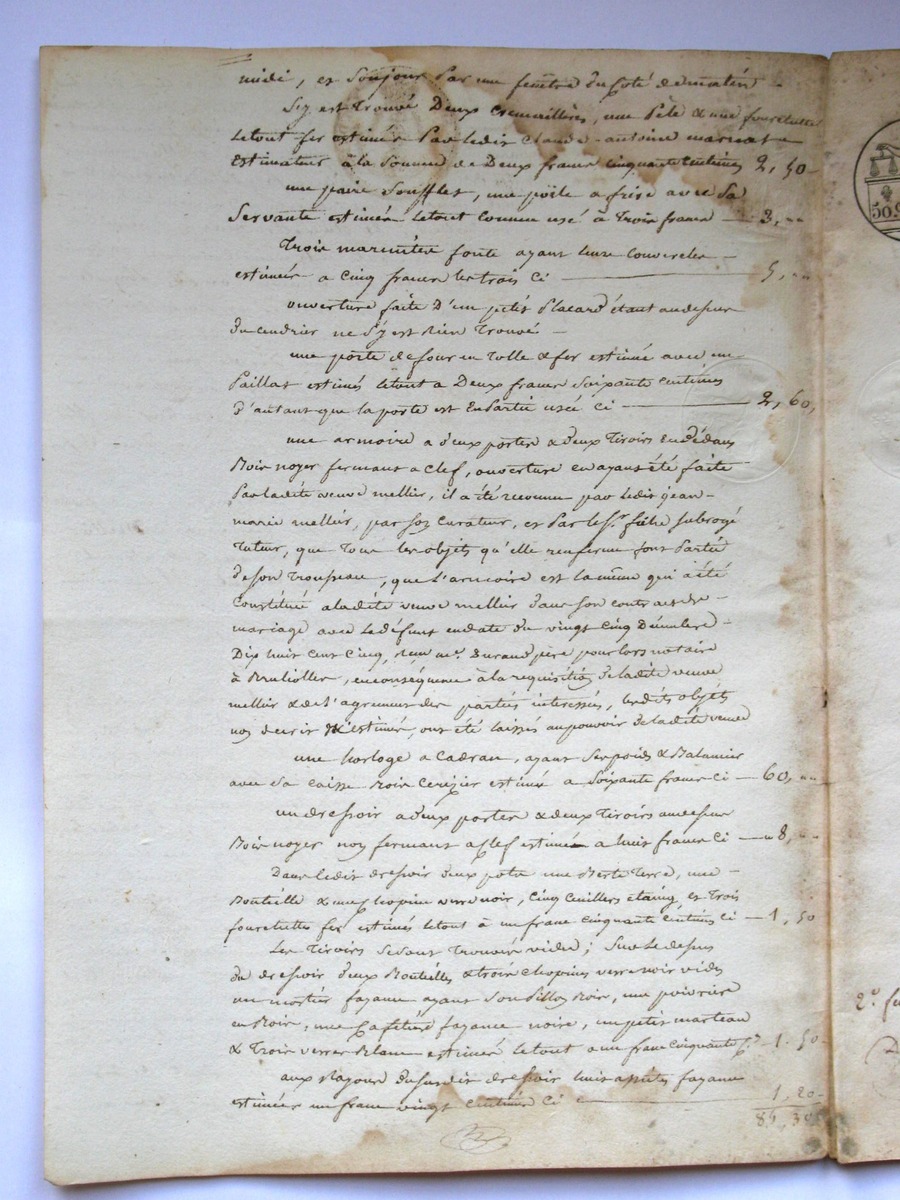 midi, et Sonjour Par une fenêtre du Coté de matin
S'y est Trouvé Deux Cremaillères, une Péle & une fourchette
Letout fer estimés Par ledit Claude-antoine
Estimateur à la Somme de Deux francs Cinquante Centimes 2, 50
une paire Soufflet, une poële a frire avec Sa
Servante estimés Letout Comme usé à Trois francs — 3, "
Trois marmittes fonte ayant leurs Couvercles —
estimés a Cinq francs les trois Ci — 5, "
ouverture faite D'un petit Placard étant au dessus
du Cendrier ne S'y est Rien Trouvé —
une porte de four en Tolle & fer estimé avec un
Paillat estimés letout a Deux francs Soixante Centimes
D'autant que la porte est En Partie usée Ci — 2, 60,
une armoire a deux portes & deux Tiroirs En dédans
Bois noyer fermant a Clef, ouverture en ayant été faite
Par ladite veuve mellin, il a été reconnu par ledit jean-
marie mellin, par Son Curateur, et Par le Sr. subrogé
Tuteur, que Tous les objets qu'elle renferme font Partie
de Son Trousseau, que L'armoire est la même qui a été
Constituée a ladite veuve mellin dans Son Contract de —
mariage avec Le défunt en date du vingt Cinq Décembre —
Dix huit Cent Cinq, reçu me. Durand père pour lors notaire
à Brulioller, en conséquence à la requisition de ladite veuve
mellin & de L'agrement des parties interessés, lesdits objets
non decrit N'estimés, ont été laissés au pouvoir de ladite veuve
une horloge a Cadran, ayant Ses poids & Balancier
avec Sa Caisse Bois Cerizier estimés a Soixante francs Ci — 60, "
un dressoir a deux portes & deux Tiroirs au dessus
Bois noyer non fermant a Clef estimés a huit francs Ci — " 8, "
Dans ledit dressoir deux pots une Berte Terre, une —
Bouteille & une Chopine verre noir, Cinq Cuillers étaing et Trois
fourchettes fer estimés letout à un franc Cinquante Centimes Ci — 1, 50
Les Tiroirs Se sont Trouvés vides ; Sur Le dessus
du dressoir deux Bouteilles & trois Chopines verre noir vides
un mortier fayance ayant Son Pillon Bois, une poivrière
en Bois, une Caffetière fayance noire, un petit marteau
& Trois verres Blanc estimés letout a un franc Cinquante Cs 1. 50
aux Rayons du Susdit dressoir huit assiettes fayance
estimées un franc vingt Centimes Ci — 1, 20
84, 30
509
2.°